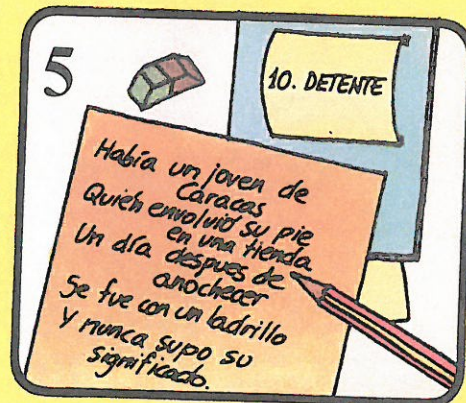 5
10. DETENTE
Había un joven de
Caracas
Quien envolvió su pie
en una tienda
Un día despues de
anochecer
Se fue con un ladrillo
Y nunca supo su
significado.